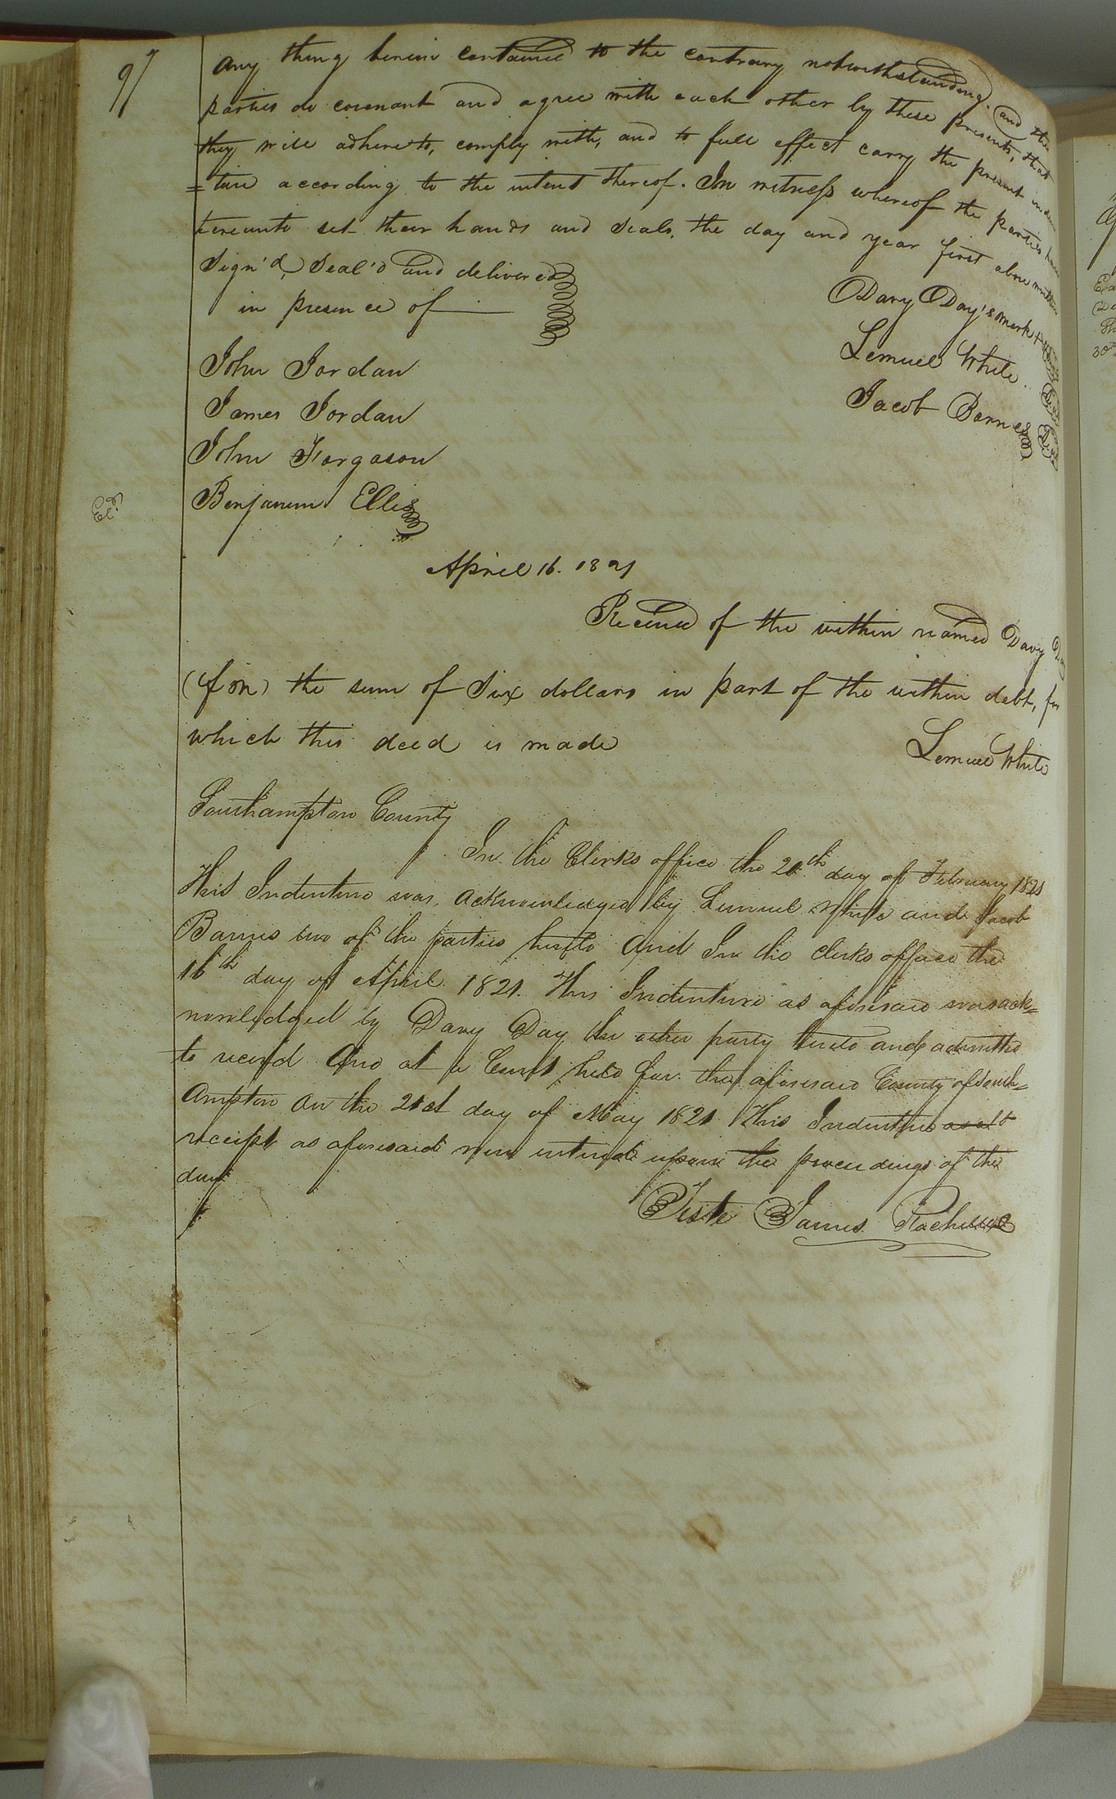 97
any thing herein contained to the contrary notwithstanding. and the
parties do covenant and agree with each other by these presents, that
they will adhere to, comply with, and to full effect carry the present inden
=ture according to the intent thereof. In witness whereof the parties have
hereunto set their hands and seals, the day and year first above written
Sign'd, Seal'd and delivered
in presence of
Davy Day's mark
John Jordan
Lemuel White
James Jordan
Jacob Barnes
John Fergason
Benjamin Ellis
Ex.d
April 16. 1821
Received of the within named Davy Day
(fon) the sum of Six dollars in part of the within debt, for
which this deed is made
Lemuel White
Southampton County
In the Clerks office the 20th day of February 1821
This Indenture was acknowledged by Lemuel White and Jacob
Barnes two of the parties hereto And In the clerks office the
16th day of April 1821. This Indenture as aforesaid was ack=
nowledged by Davy Day the other party hereto and admitted
to record And at a Court held for the aforesaid County of South=
ampton on the 21st day of May 1821 This Indenture
receipt as aforesaid were entered upon the proceedings of the
day
Teste James Rochelle